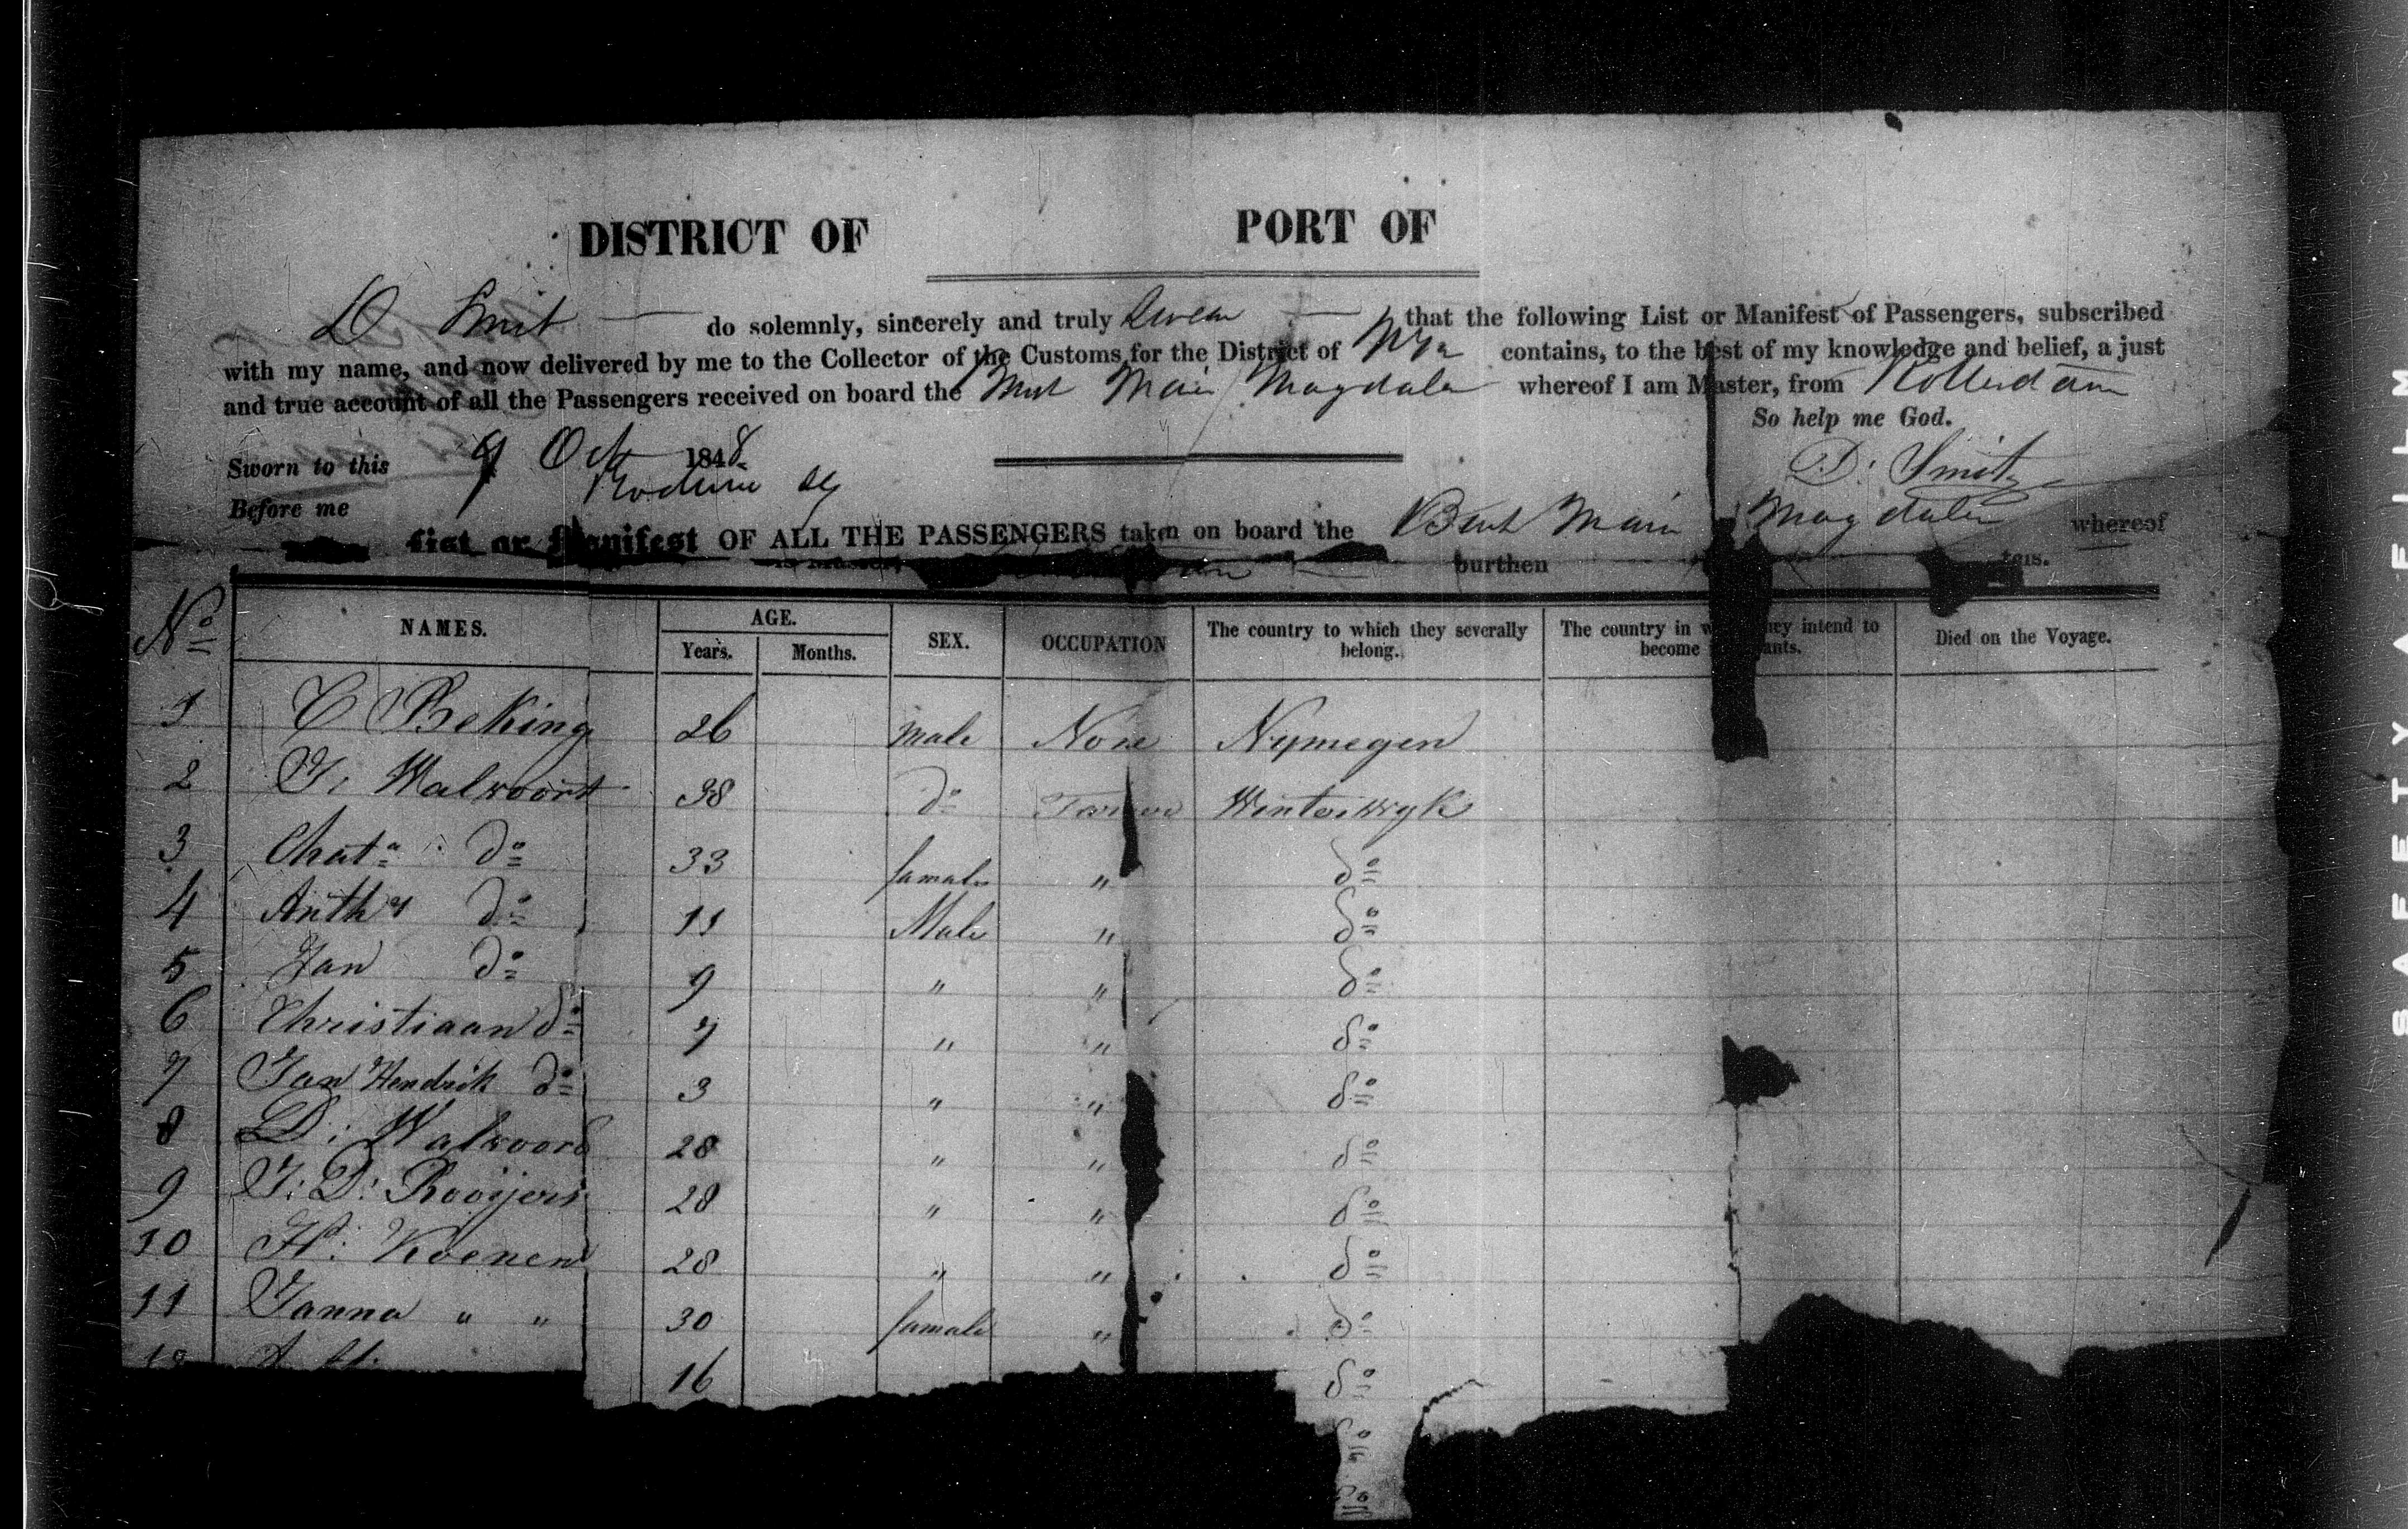 DISTRICT OF PORT OF
D Smit do solemnly, sincerely and truly swear that the following List or Manifest of Passengers, subscribed
with my name, and now delivered by me to the Collector of the Customs for the District of contains, to the best of my knowledge and belief, a just
and true account of all the Passengers received on board the Magdalen whereof I am Master, from Rotterdam
So help me God.
Sworn to this 9 Oct 1848.
D: Smit
Before me
List or Manifest OF ALL THE PASSENGERS taken on board the Magdalen whereof
is Master, burthen tons.
No NAMES. AGE. SEX. OCCUPATION The country to which they severally belong. The country in they intend to become Died on the Voyage.
Years. Months.
1 C Beking 26 Male None Nymegen
2 J: Walvoort 38 do Farmer Winterwyk
3 Chata do 33 famale " do
4 Anthy do 11 Male " do
5 Jan do 9 " " do
6 Christiaan do 7 " " do
7 Jan Hendrik do 3 " " do
8 D: Walvoord 28 " " do
9 J: D: Rooijers 28 " " do
10 H: Koenen 28 " " do
11 Janna " " 30 famale " do
12 16 do
do
do
SAFETY FILM